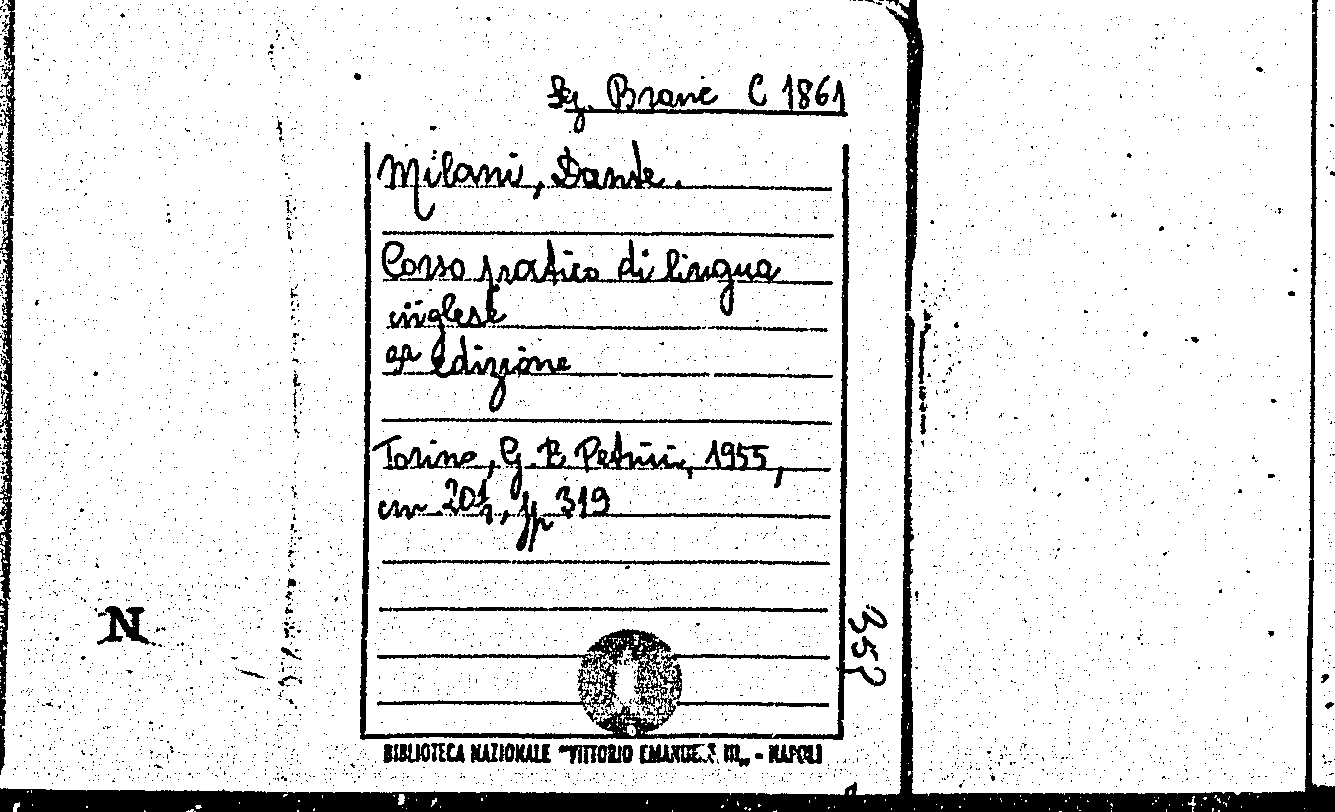 Sg. Branc C 1861
Milani, Dante.
Corso pratico di lingua
inglese
9ª edizione
Torino, G. B. Petrini, 1955,
cm 20½, pp 319
N
352
BIBLIOTECA NAZIONALE "VITTORIO EMANUELE III" - NAPOLI